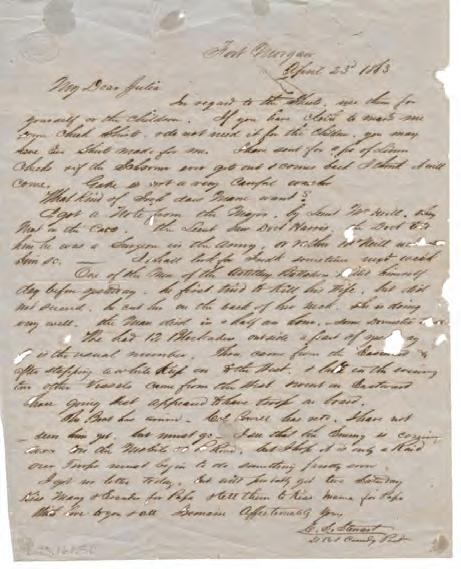 Fort Morgan
April 23d 1863
My Dear Julia
In regard to the Shirts, use them for
yourself or the children. If you have cloth to make me
Check Shirts, & do not need it for the Children, you may
have two Shirts made for me. I have sent for a ps of Linen
Checks & if the Schooner ever gets out & comes back I think it will
come. Gake is not a very careful washer
What kind of does Mame want?
I got a Note from the Major, by Lieut
that in the case the Lieut Harris,
him he was a Surgeon in the Army, or
him &c. — I shall look for Smith sometime next week
One of the Men of the Artillery Battalion killed himself
day before yesterday. he first tried to kill his Wife, but did
not succeed. he cut her on the back of her neck. she is doing
very well. the Man died in a half an hour. some domestic
We had 12 Blockaders outside a part of yesterday
is the usual number. They came from the Eastward &
after stopping a while kept on to the West. & late in the evening
two other Vessels came from the West & went on Eastward
those going that appeared to have troops on board.
The Boat has arrived. Col Powell has I have not
seen him yet, but must go. I see that the Enemy is
on the Mobile & but I hope it is only a Raid
Our troops must begin to do something pretty soon.
I got no letter today, but will probably get two Saturday
Kiss Mary & for Papa & tell them to Kiss mama for Papa
With love to you & all I remain Affectionately yours,
C. S. Stewart
Lt Col Comdg Post